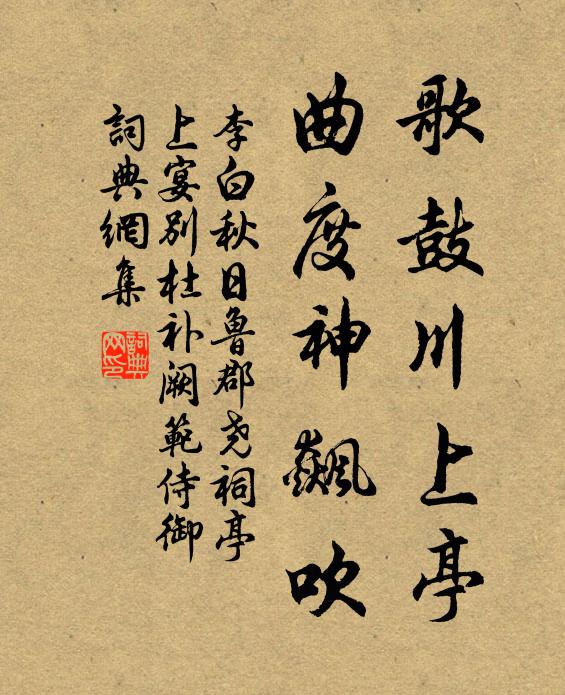 歌鼓川上亭
曲度神飆吹
李白秋日魯郡堯祠亭
上宴別杜补阙範侍御
詞典網集
詞典
网印